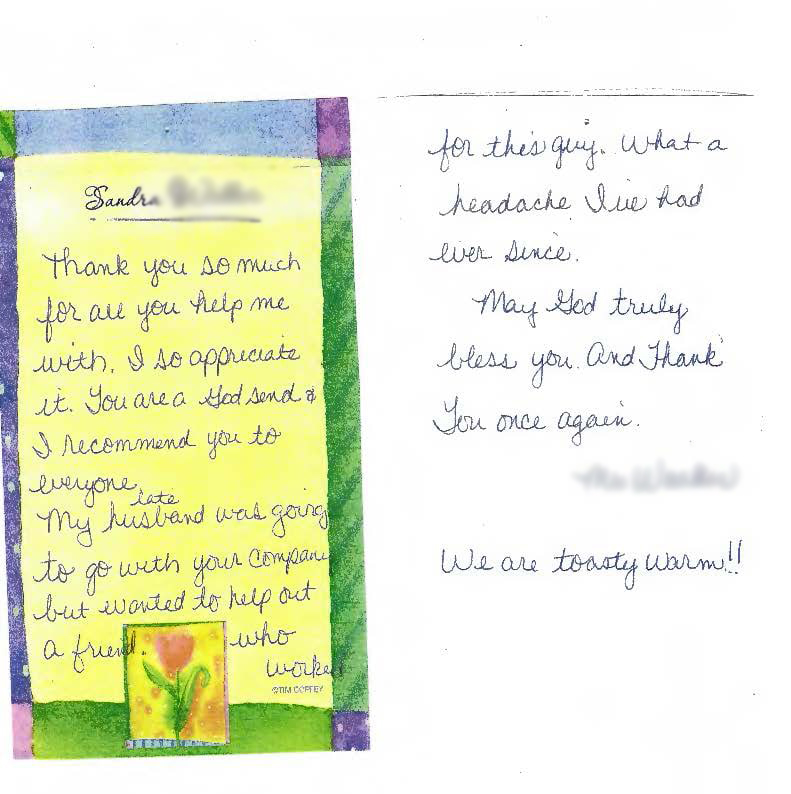 Sandra
Thank you so much
for all you help me
with. I so appreciate
it. You are a God send &
I recommend you to
everyone.
My late husband was going
to go with your Company
but wanted to help out
a friend. who
worked
©TIM COFFEY
for this guy. What a
headache I've had
ever since.
May God truly
bless you. And Thank
You once again.
We are toasty warm!!